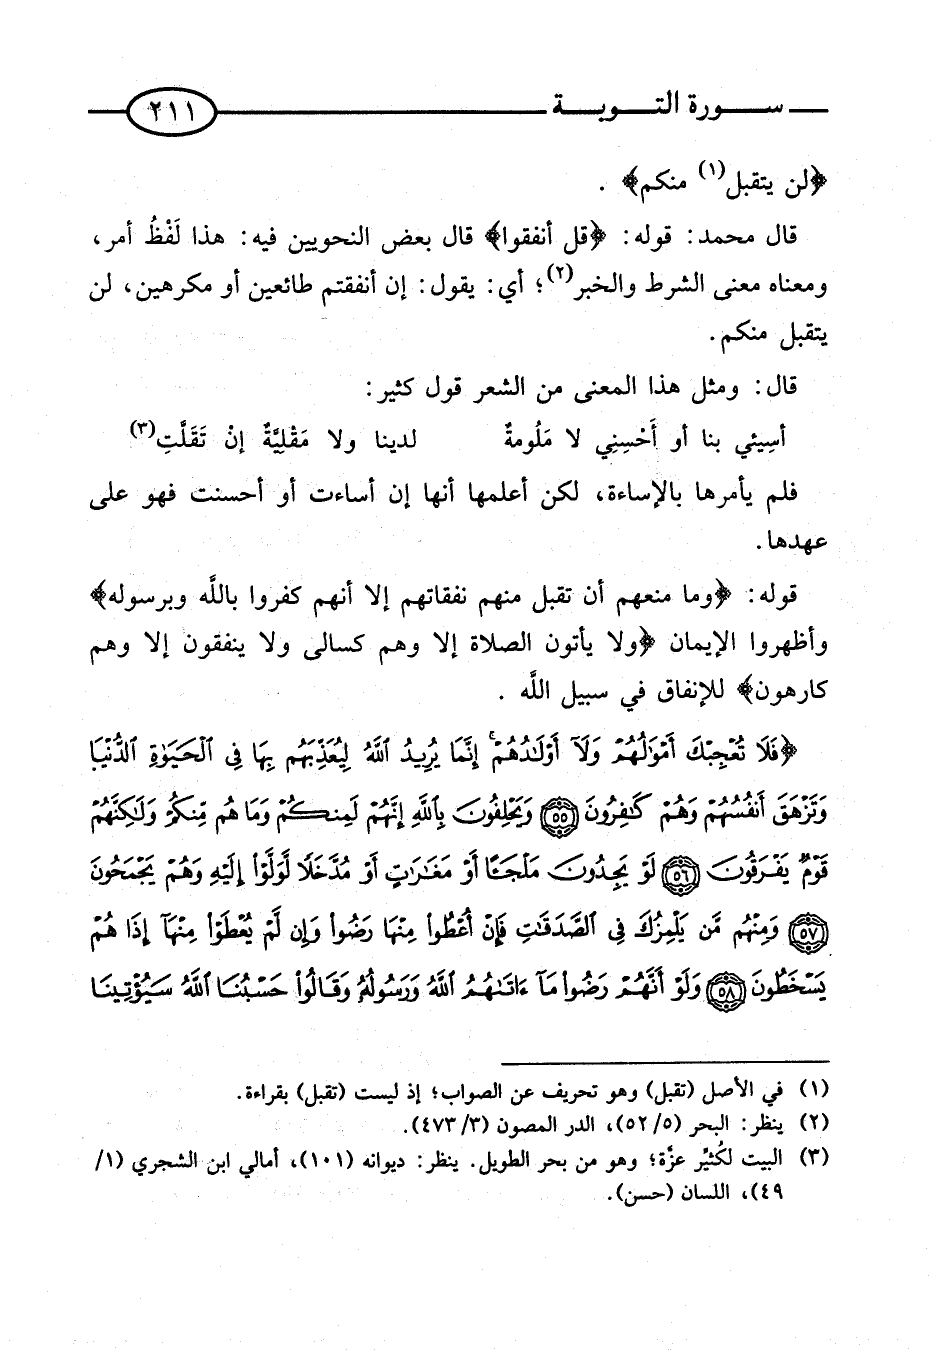 سورة التوبة ٢١١
﴿لن يتقبل(١) منكم﴾ .
قال محمد: قوله: ﴿قل أنفقوا﴾ قال بعض النحويين فيه: هذا لَفْظُ أمر،
ومعناه معنى الشرط والخبر(٢)؛ أي: يقول: إن أنفقتم طائعين أو مكرهين، لن
يتقبل منكم.
قال: ومثل هذا المعنى من الشعر قول كثير:
أسِيئي بنا أو أَحْسِنِي لا مَلُومةٌ لدينا ولا مَقْلِيَّةٌ إنْ تَقَلَّتِ(٣)
فلم يأمرها بالإساءة، لكن أعلمها أنها إن أساءت أو أحسنت فهو على
عهدها.
قوله: ﴿وما منعهم أن تقبل منهم نفقاتهم إلا أنهم كفروا باللَّه وبرسوله﴾
وأظهروا الإيمان ﴿ولا يأتون الصلاة إلا وهم كسالى ولا ينفقون إلا وهم
كارهون﴾ للإنفاق في سبيل اللَّه .
﴿فَلَا تُعْجِبْكَ أَمْوَٰلُهُمْ وَلَآ أَوْلَٰدُهُمْ ۚ إِنَّمَا يُرِيدُ ٱللَّهُ لِيُعَذِّبَهُم بِهَا فِى ٱلْحَيَوٰةِ ٱلدُّنْيَا
وَتَزْهَقَ أَنفُسُهُمْ وَهُمْ كَٰفِرُونَ ٥٥ وَيَحْلِفُونَ بِٱللَّهِ إِنَّهُمْ لَمِنكُمْ وَمَا هُم مِّنكُمْ وَلَٰكِنَّهُمْ
قَوْمٌ يَفْرَقُونَ ٥٦ لَوْ يَجِدُونَ مَلْجَـًٔا أَوْ مَغَٰرَٰتٍ أَوْ مُدَّخَلًا لَّوَلَّوْا۟ إِلَيْهِ وَهُمْ يَجْمَحُونَ
٥٧ وَمِنْهُم مَّن يَلْمِزُكَ فِى ٱلصَّدَقَٰتِ فَإِنْ أُعْطُوا۟ مِنْهَا رَضُوا۟ وَإِن لَّمْ يُعْطَوْا۟ مِنْهَآ إِذَا هُمْ
يَسْخَطُونَ ٥٨ وَلَوْ أَنَّهُمْ رَضُوا۟ مَآ ءَاتَىٰهُمُ ٱللَّهُ وَرَسُولُهُۥ وَقَالُوا۟ حَسْبُنَا ٱللَّهُ سَيُؤْتِينَا
(١) في الأصل (تقبل) وهو تحريف عن الصواب؛ إذ ليست (تقبل) بقراءة.
(٢) ينظر: البحر (٥/ ٥٢)، الدر المصون (٣/ ٤٧٣).
(٣) البيت لكُثيِّر عزَّة؛ وهو من بحر الطويل. ينظر: ديوانه (١٠١)، أمالي ابن الشجري (١/
٤٩)، اللسان (حسن).